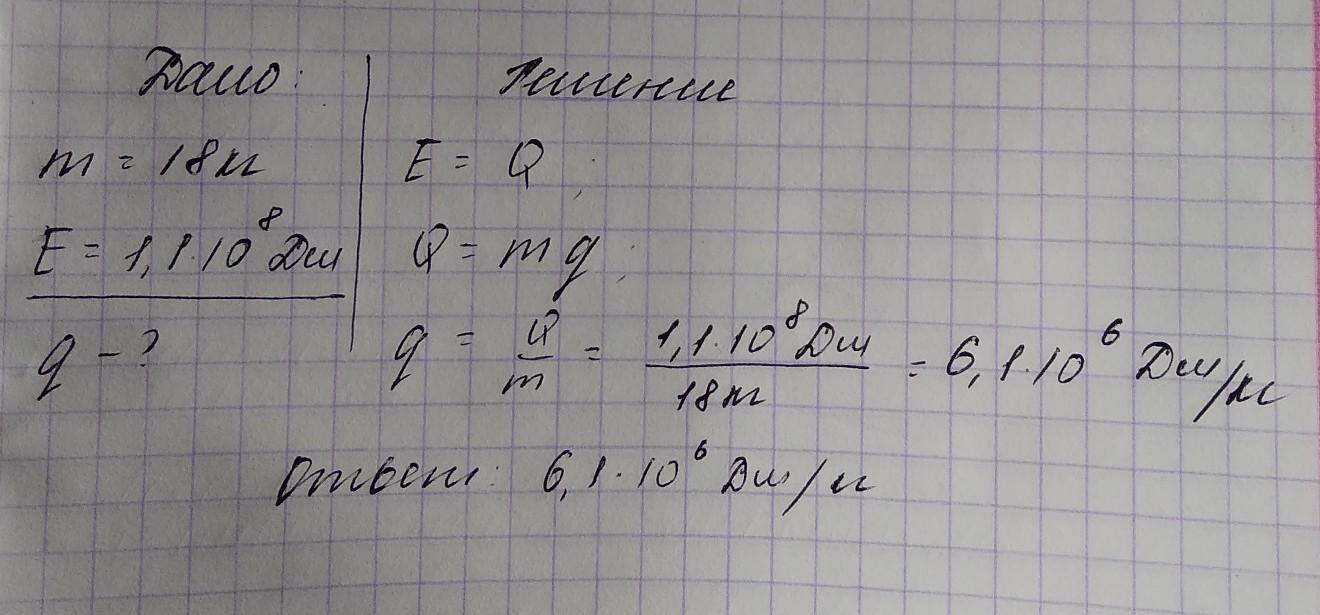 Дано:
m = 18кг
E = 1,1·10⁸Дж
q - ?
Решение
E = Q;
Q = mq;
q = Q/m = 1,1·10⁸Дж/18кг = 6,1·10⁶ Дж/кг
Ответ: 6,1·10⁶ Дж/кг